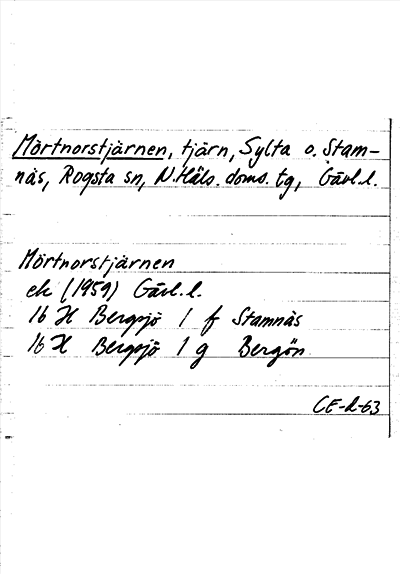 Mörtnorstjärnen, tjärn, Sylta o. Stam-
näs, Rogsta sn, N. Häls. doms. tg, Gävl.l.
Mörtnorstjärnen
ek (1959) Gävl.l.
16 H Bergsjö 1 f Stamnäs
16 H Bergsjö 1 g Bergön
CE-d-63